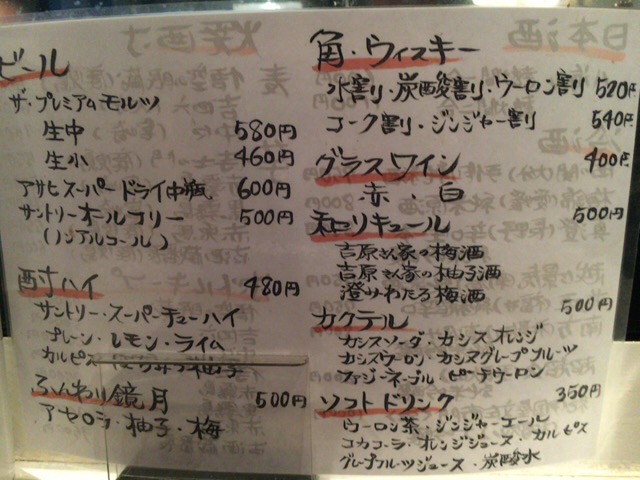 ビール
ザ・プレミアムモルツ
生中 580円
生小 460円
アサヒスーパードライ中瓶 600円
サントリーオールフリー 500円
(ノンアルコール)
酎ハイ 480円
サントリー・スーパーチューハイ
プレーン・レモン・ライム
カルピス はちみつ柚子
ふんわり鏡月 500円
アセロラ・柚子・梅
角・ウィスキー
水割り・炭酸割り・ウーロン割り 520円
コーク割り・ジンジャー割り 540円
グラスワイン 400円
赤・白
和リキュール 500円
吉原さん家の梅酒
吉原さん家の柚子酒
澄みわたる梅酒
カクテル 500円
カシスソーダ・カシスオレンジ
カシスウーロン・カシスグレープフルーツ
ファジーネーブル ピーチウーロン
ソフトドリンク 350円
ウーロン茶・ジンジャーエール
コカコーラ・オレンジジュース・カルピス
グレープフルーツジュース・炭酸水